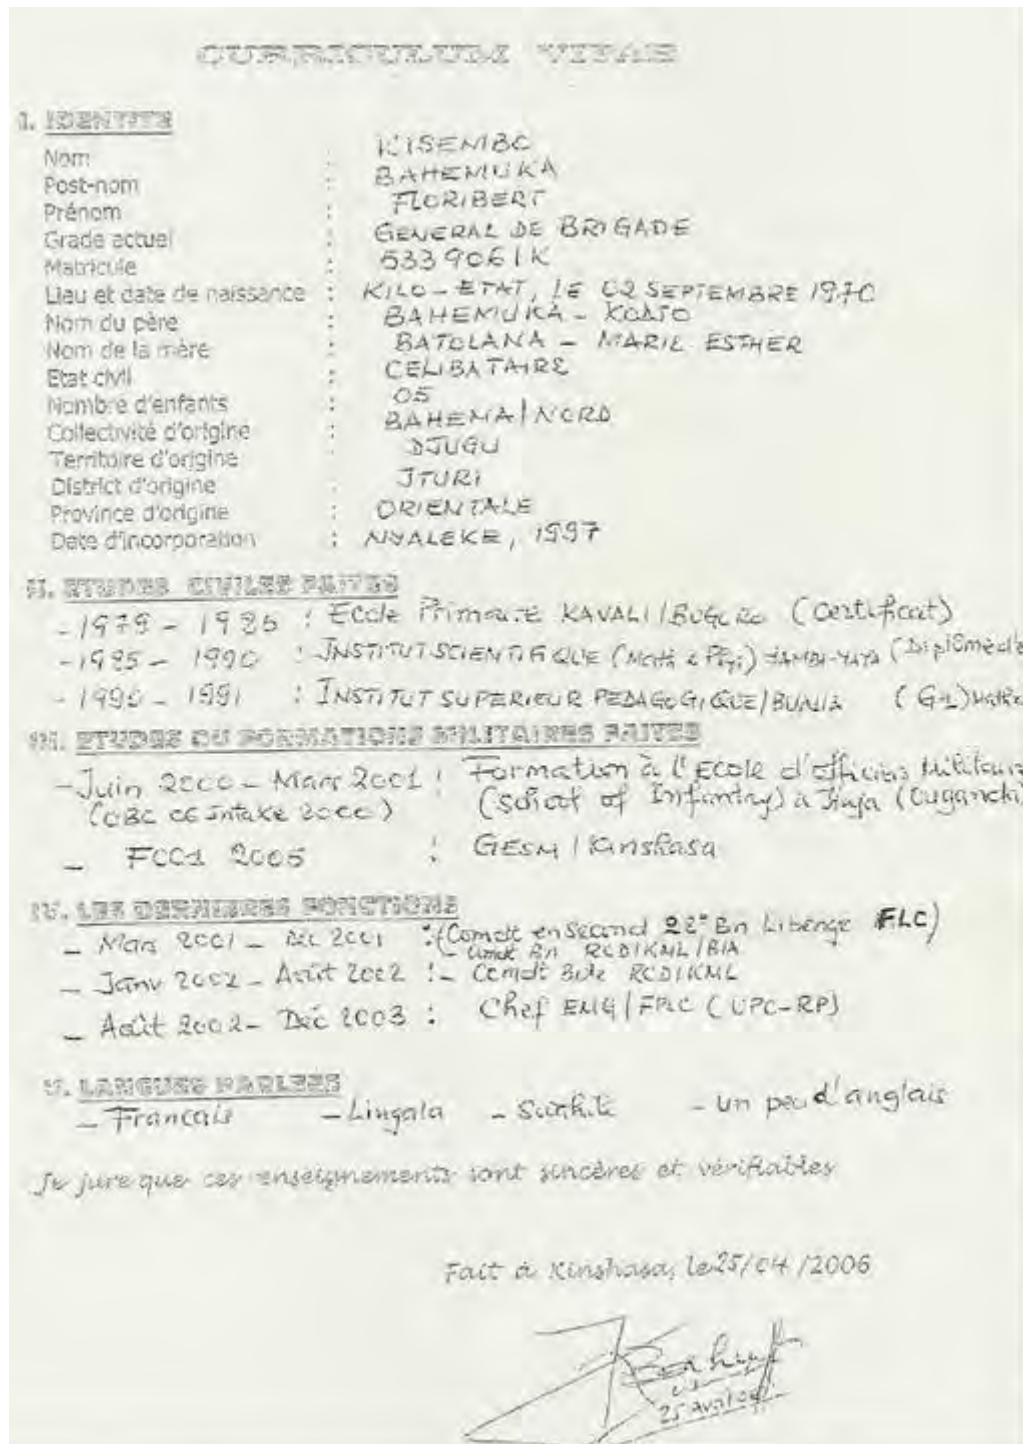 CURRICULUM VITAE
I. IDENTITE
Nom : KISEMBO
Post-nom : BAHEMUKA
Prénom : FLORIBERT
Grade actuel : GENERAL DE BRIGADE
Matricule : 5339061K
Lieu et date de naissance : KILO-ETAT, LE 02 SEPTEMBRE 1970
Nom du père : BAHEMUKA -
Nom de la mère : BATOLANA - MARIE ESTHER
Etat civil : CELIBATAIRE
Nombre d'enfants : 05
Collectivité d'origine : BAHEMA/NORD
Territoire d'origine : DJUGU
District d'origine : ITURI
Province d'origine : ORIENTALE
Date d'incorporation : NYALEKE, 1997
II. ETUDES CIVILES FAITES
- 1979 - 1985 : Ecole Primaire KAVALI/BOGORO (Certificat)
- 1985 - 1990 : INSTITUT SCIENTIFIQUE (Math & Phy)
- 1990 - 1991 : INSTITUT SUPERIEUR PEDAGOGIQUE/BUNIA (G1)
III. ETUDES OU FORMATIONS MILITAIRES FAITES
- Juin 2000 - Mars 2001 : Formation à l'Ecole d'officiers Militaire
(OBC 06 intake 2000) (School of Infantry) à Jinja (Ouganda)
- FCC1 2005 : GESM / Kinshasa
IV. LES DERNIERES FONCTIONS
- Mars 2001 - Déc 2001 : (Comdt en Second 22e Bn Libenge FLC)
- Comdt Bn RCD/KML/BIA
- Janv 2002 - Août 2002 : - Comdt Bde RCD/KML
- Août 2002 - Déc 2003 : Chef EMG/FPLC (UPC-RP)
V. LANGUES PARLEES
- Français - Lingala - Swahili - un peu d'anglais
Je jure que ces enseignements sont sincères et vérifiables
Fait à Kinshasa, le 25/04/2006
25 Avril 06